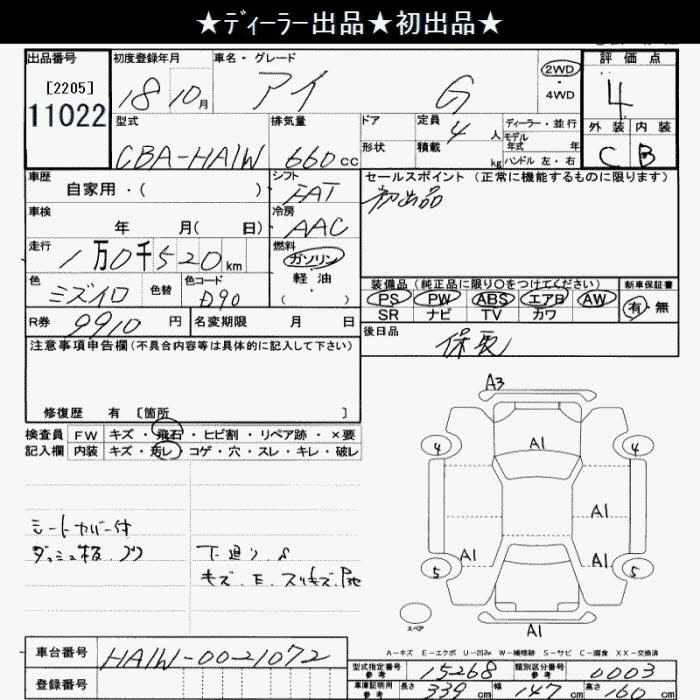 ★ディーラー出品★初出品★
出品番号 初度登録年月 車名・グレード 2WD 評価点
[2205] 18 10月 アイ G ・ 4
11022 4WD
型式 排気量 ドア 定員 4人 ディーラー・並行 外装 内装
モデル
CBA-HA1W 660cc 形状 積載 kg 年式 年 C B
ハンドル 左・右
車歴 シフト セールスポイント (正常に機能するものに限ります)
自家用・( ) FAT 初出品
車検 冷房
年 月( 日) AAC
走行 燃料
1万0千520km ガソリン
軽油
色 色替 色コード ( ・ ) 装備品 (純正品に限り○をつけてください) 新車保証書
ミズイロ D90 PS PW ABS エアB AW 有・無
SR ナビ TV カワ
R券 9910円 名変期限 月 日 後日品
注意事項申告欄 (不具合内容等は具体的に記入して下さい)
修復歴 有 〔箇所 〕
検査員 FW キズ・飛石・ヒビ割・リペア跡・×要
記入欄 内装 キズ・汚レ・コゲ・穴・スレ・キレ・破レ
A3
A1
4 4
A1
A1 A1
5 5
スペア
A1
シートカバー付
下廻り
A-キズ E-エクボ U-凹み W-補修跡 S-サビ C-腐食 XX-交換済
車台番号 HA1W-0021072
型式指定番号 参考 15268 類別区分番号 参考 0003
登録番号
車庫証明用 参考 長さ 339cm 幅 147cm 高さ 160cm